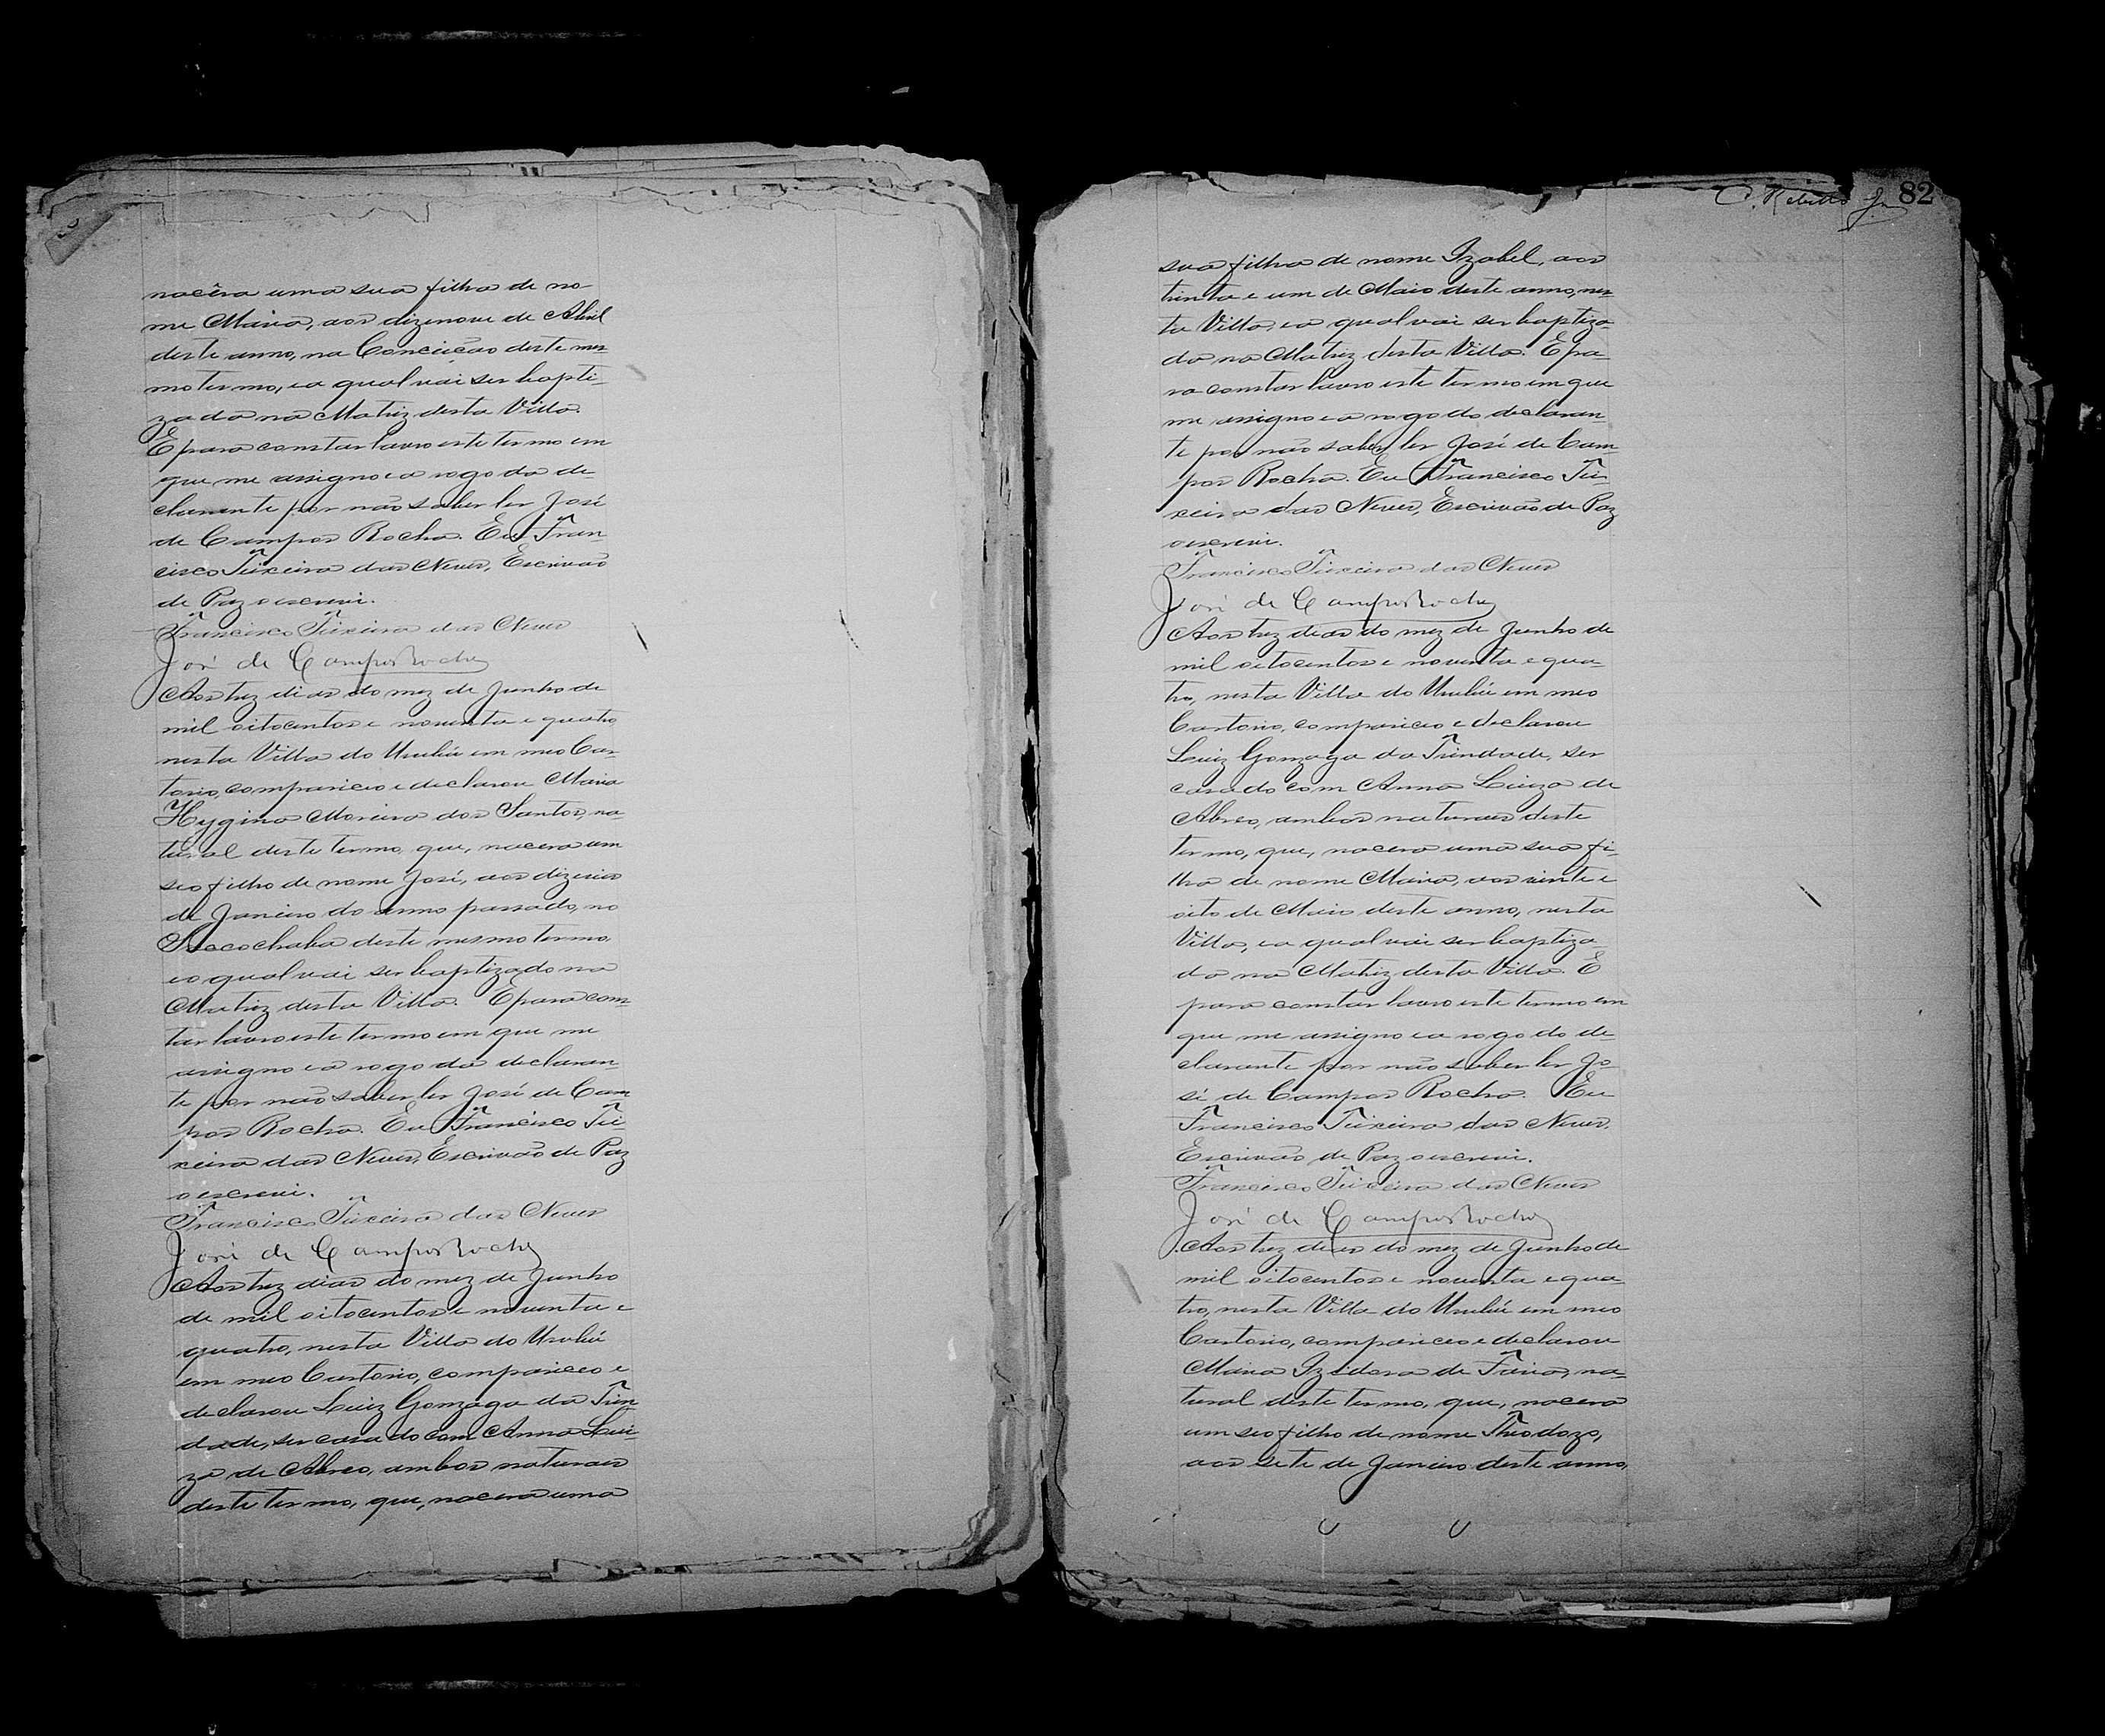 nacêra uma sua filha de no-
me Maria, aos dizenove de Abril
deste anno, na Conceição deste mes-
mo termo, e a qual vai ser bapti-
zada na Matriz desta Villa.
E para constar lavro este termo em
que me assigno e a rogo da de-
clarante por não saber ler José
de Campos Rocha. Eu Fran-
cisco Teixeira das Neves, Escrivão
de Paz o escrevi.
Francisco Teixeira das Neves
José de Campos Rocha
Aos trez dias do mez de Junho de
mil oitocentos e noventa e quatro
nesta Villa do Urubú em meo Car-
torio, compareceo e declarou Maria
Hygina Moreira dos Santos, na-
tural deste termo, que, nacera um
seo filho de nome José, aos dizeseis
de Janeiro do anno passado, no
deste mesmo termo,
e o qual vai ser baptizado na
Matriz desta Villa. E para cons-
tar lavro este termo em que me
assigno e a rogo da declaran-
te por não saber ler José de Cam-
pos Rocha. Eu Francisco Tei-
xeira das Neves, Escrivão de Paz
o escrevi.
Francisco Teixeira das Neves
José de Campos Rocha
Aos trez dias do mez de Junho
de mil oitocentos e noventa e
quatro, nesta Villa do Urubú
em meo Cartorio, compareceo e
declarou Luiz Gonzaga da Trin-
dade, ser casado com Anna Lui-
za de Abreo, ambos naturaes
deste termo, que, nacera uma
82
sua filha de nome Izabel, aos
trinta e um de Maio deste anno, nes-
ta Villa, e a qual vai ser baptiza-
da na Matriz desta Villa. E pa-
ra constar lavro este termo em que
me assigno e a rogo do declaran-
te por não saber ler José de Cam-
pos Rocha. Eu Francisco Tei-
xeira das Neves, Escrivão de Paz
o escrevi.
Francisco Teixeira das Neves
José de Campos Rocha
Aos trez dias do mez de Junho de
mil oitocentos e noventa e qua-
tro, nesta Villa do Urubú em meo
Cartorio, compareceo e declarou
Luiz Gonzaga da Trindade, ser
casado com Anna Luiza de
Abreo, ambos naturaes deste
termo, que, nacera uma sua fi-
lha de nome Maria, aos vinte e
oito de Maio deste anno, nesta
Villa, e a qual vai ser baptiza-
da na Matriz desta Villa. E
para constar lavro este termo em
que me assigno e a rogo do de-
clarante por não saber ler Jo-
sé de Campos Rocha. Eu
Francisco Teixeira das Neves,
Escrivão de Paz o escrevi.
Francisco Teixeira das Neves
José de Campos Rocha
Aos trez dias do mez de Junho de
mil oitocentos e noventa e qua-
tro, nesta Villa do Urubú em meo
Cartorio, compareceo e declarou
Maria Izidora de Faria, na-
tural deste termo, que, nacera
um seo filho de nome Theodozo,
aos sete de Janeiro deste anno,